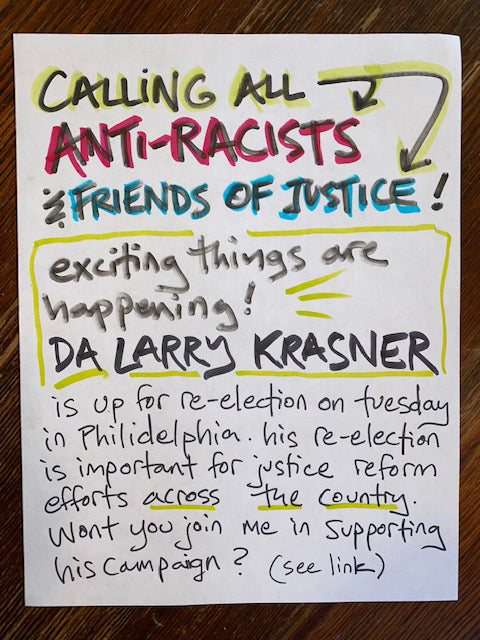 CALLING ALL
ANTI-RACISTS
& FRIENDS OF JUSTICE!
exciting things are
happening!
DA LARRY KRASNER
is up for re-election on tuesday
in Philidelphia. his re-election
is important for justice reform
efforts across the country.
Wont you join me in supporting
his campaign? (see link)